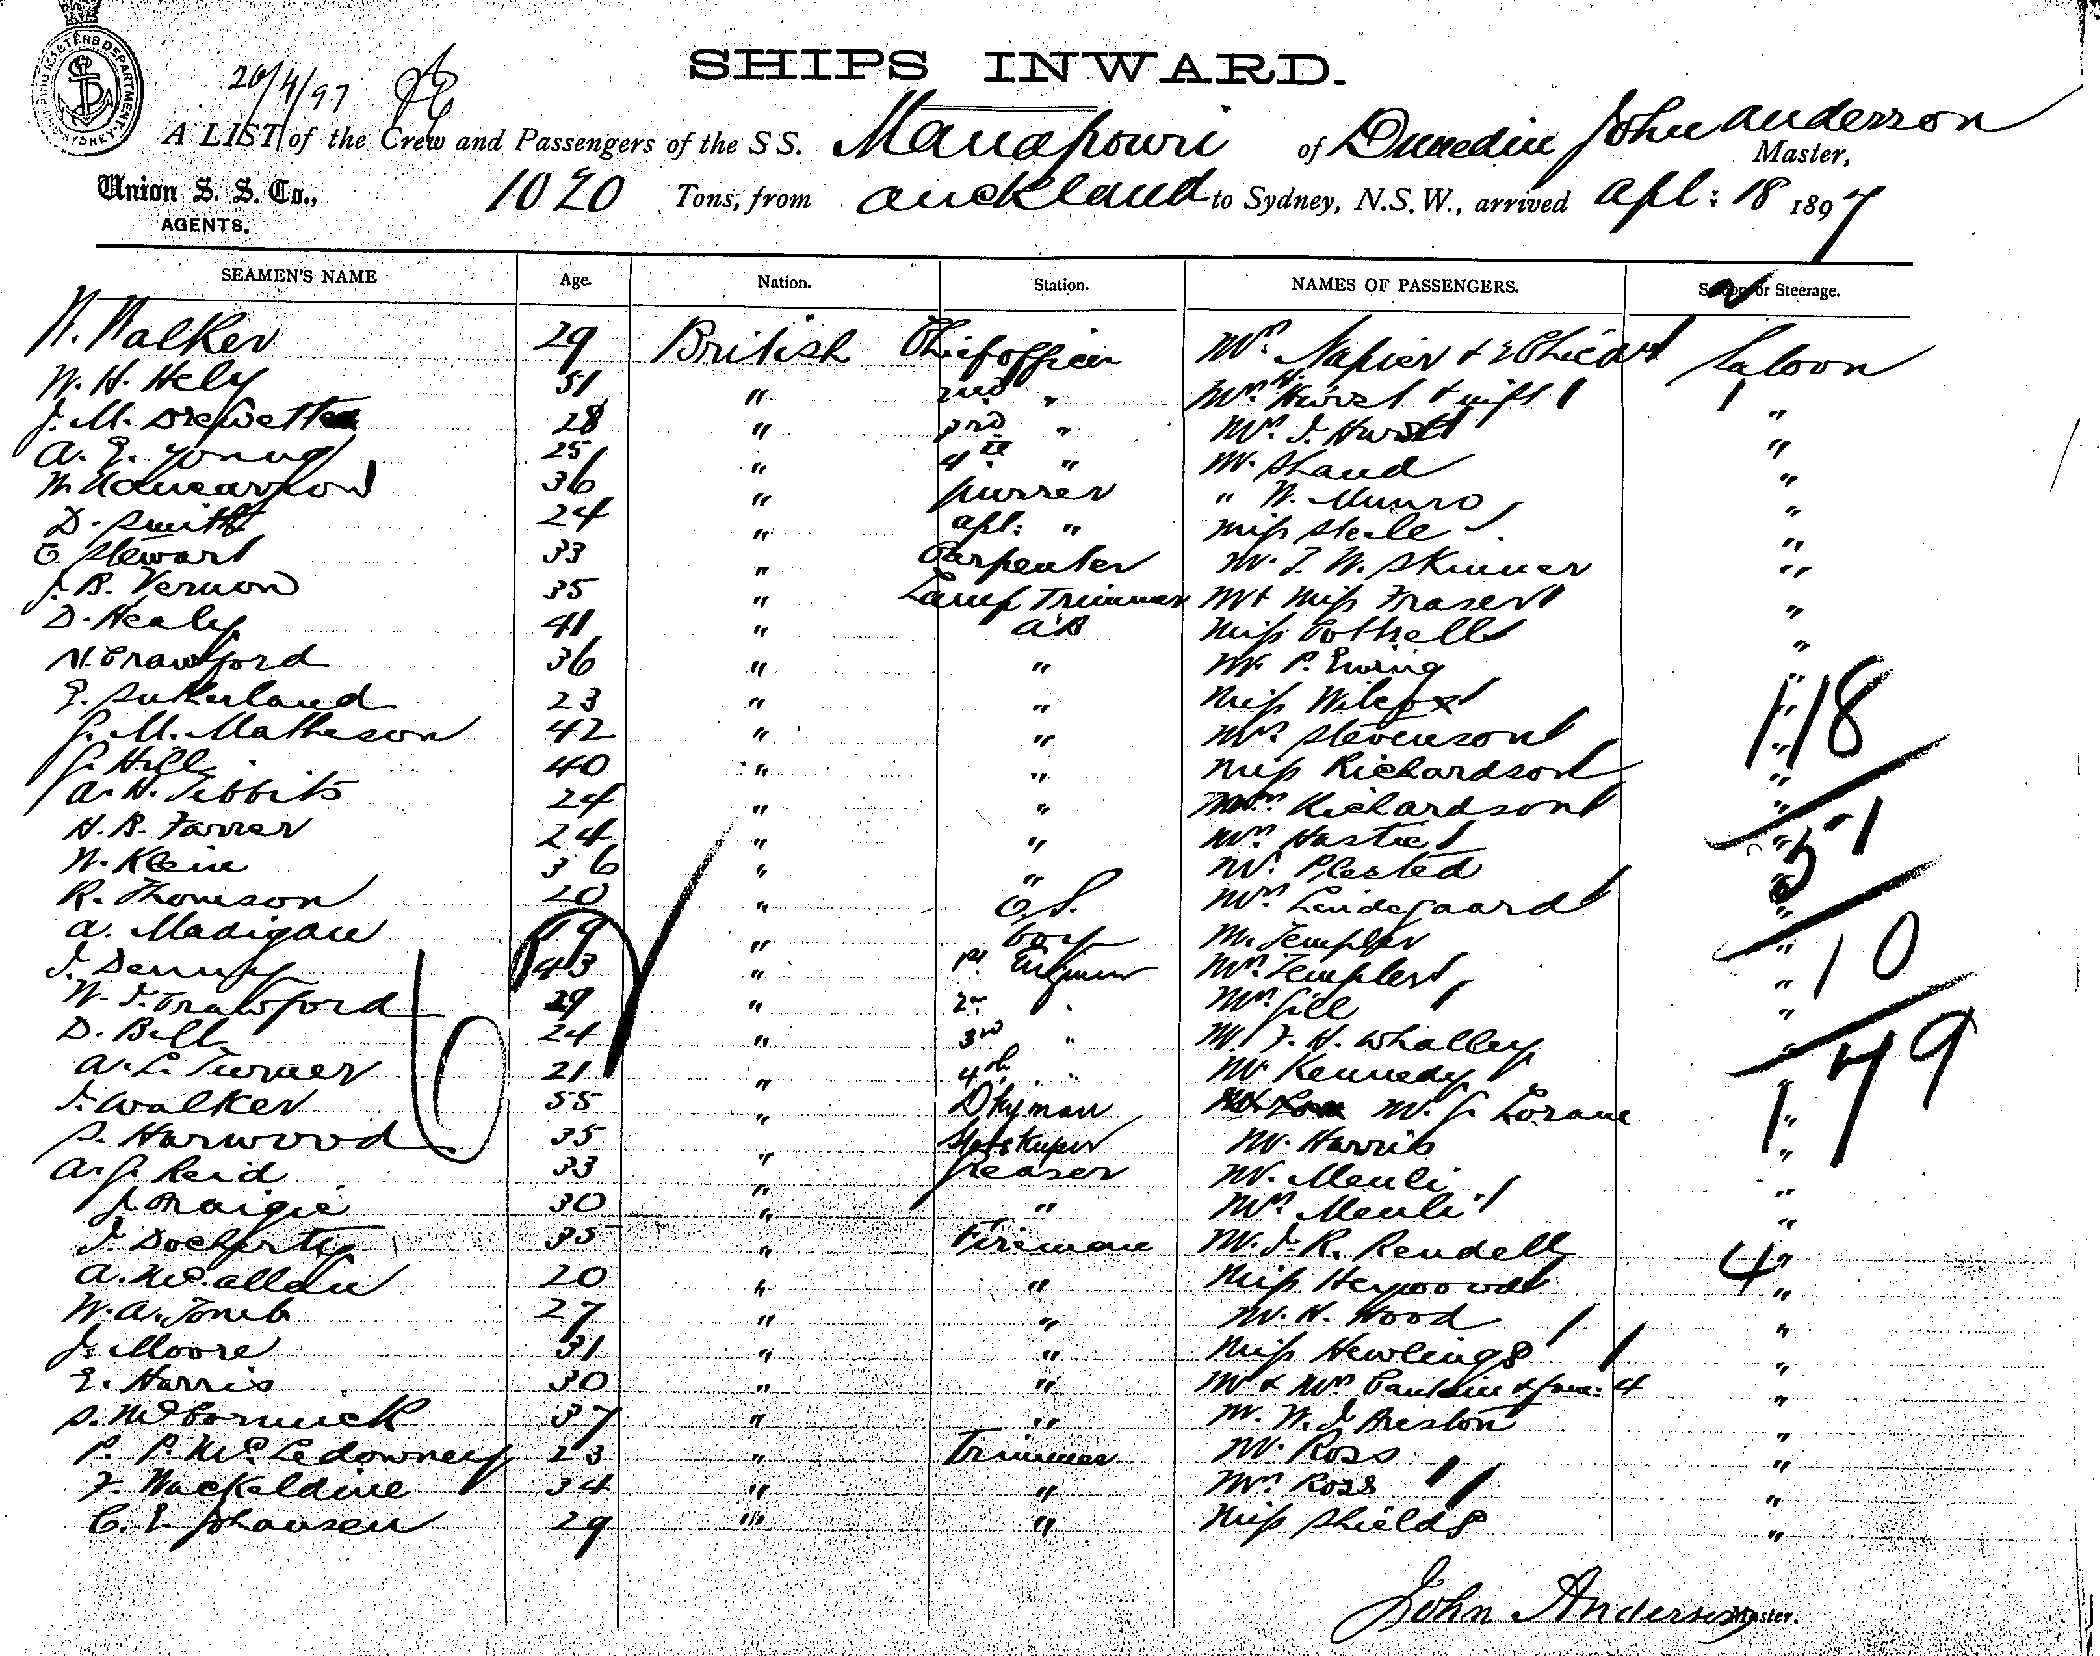 SHIPPING MASTERS DEPARTMENT SYDNEY
20/4/97
SHIPS INWARD.
A LIST of the Crew and Passengers of the SS. Manapouri of Dunedin John Anderson Master,
Union S. S. Co., AGENTS. 1020 Tons, from Auckland to Sydney, N.S.W., arrived Apl: 18 1897
SEAMEN'S NAME Age. Nation. Station. NAMES OF PASSENGERS. Saloon or Steerage.
W. Walker 29 British Chief officer Mrs. Napier & 2 Saloon
W. H. Hely 51 " 2nd " Mr. Hurst & wife "
J. M. 28 " 3rd " Mr. J. Hurst "
A. E. Young 25 " 4th " Mr. Shand "
W. 36 " purser " W. Munro "
D. Smith 24 " apt: " Miss Steele "
C. Stewart 33 " Carpenter Mr. T. W. Skinner "
J. B. Vernon 35 " Lamp Trimmer Mr & Miss Fraser "
D. Healy 41 " AB Miss Cottrell "
W. Crawford 36 " " Mr P. Ewing "
E. Sutherland 23 " " Miss Wilcox "
J. M. Matheson 42 " " Mrs. Stevenson "
J. Hill 40 " " Miss Richardson "
A. H. Tibbits 24 " " Mrs. Richardson "
H. B. Farrer 24 " " Mrs. Hastie "
W. Klein 36 " " Mr. Plested "
R. Thomson 20 " O.S. Mrs. Lindegaard "
A. Madigan 19 " boy Mr. Templer "
J. Denny 43 " 1st. Engineer Mrs. Templer "
W. J. Crawford 29 " 2nd " Mrs. Gill "
D. Bell 24 " 3rd " Mr. F. H. Whalley "
A. L. Turner 21 " 4th " Mr Kennedy "
J. Walker 55 " Dkyman Mr. J. Lorane "
S. Harwood 35 " Storekeeper Mr. Harris "
A. J. Reid 33 " Greaser Mr. Menli "
J. Craigie 30 " " Mrs. Menli "
J. Docherty 35 " Fireman Mr. J. R. Rendell "
A. McCallan 20 " " Miss Heywood "
W. A. Tomb 27 " " Mr. H. Wood "
J. Moore 31 " " Miss Hewlings "
E. Harris 30 " " Mr & Mrs & fam: 4 "
S. McCormick 37 " " Mr. W. J. Preston "
P. P. 23 " Trimmer Mr. Ross "
F. Mackeldine 34 " " Mrs. Ross "
C. E. Johansen 29 " " Miss Shields "
18
51
10
79
4
John Anderson Master.